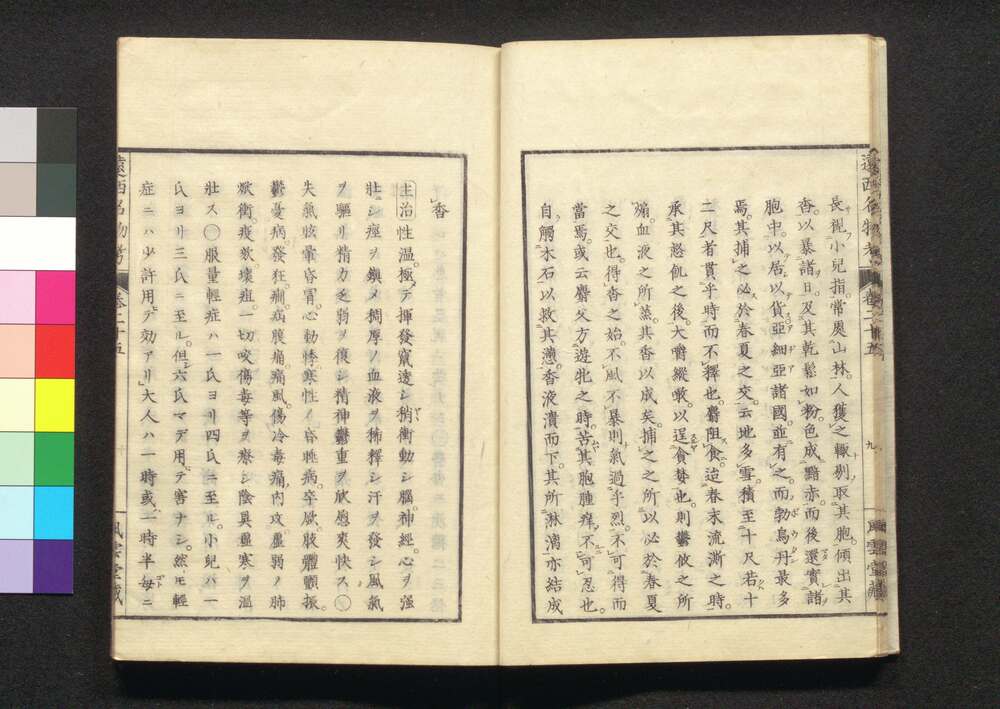 長裩小兒指常奥山林人獲之輙剔取其胞傾出其
香以暴諸日及其乾鬆如粉色成黯赤而後還實諸
胞中以居以貨亞細亞諸國並有之而勃烏丹最多
焉其捕之必於春夏之交云地多雪積至十尺若十
二尺者貫乎時而不釋也麝阻食迨春末流澌之時
承其愁飢之後大嚼縱噉以逞食婪也則鬱攸之所
煽血液之所蒸其香以成矣捕之之所以必於春夏
之交也得香之始不風不暴則氣過乎烈不可得而
當焉或云麝父方遊牝之時苦其胞腫痒不可忍也
自觸木石以救其懣香液潰而下其所淋漓亦結成
香
主治性溫極テ揮發竄透シ稍衝動シ腦神經心ヲ强
壯シ痙ヲ鎭メ稠厚ノ血液ヲ稀釋シ汗ヲ發シ風氣
ヲ驅リ精力乏弱ヲ復シ精神鬱重ヲ欣慰爽快ス〇
失氣眩暈昏冒心動悸寒性ノ昏睡病卒厥肢體顫振
鬱憂病發狂癎病腹痛痛風傷冷毒痛内攻虛弱ノ肺
焮衝疫欬壞疽一切咬傷毒等ヲ療シ陰具虛寒ヲ溫
壯ス〇服量輕症ハ一氏ヨリ四氏ニ至ル小兒ハ一
氏ヨリ三氏ニ至ル但六氏マデ用テ害ナシ然モ輕
症ニハ少許用テ効アリ大人ハ一時或一時半每ニ
遠西名物考 卷二十五
九
風雲堂藏
遠西名物考 卷二十五
風雲堂藏